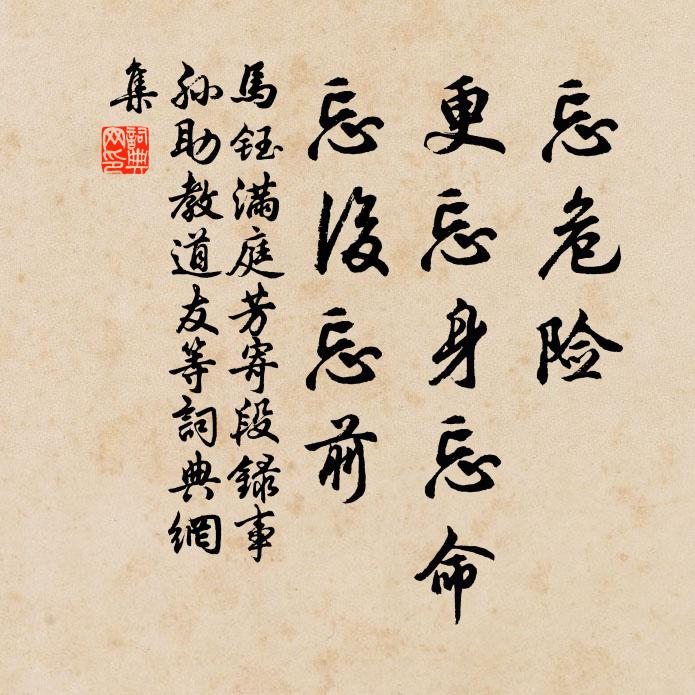 忘危险
更忘身忘命
忘後忘前
馬鈺滿庭芳寄段録事
孙助教道友等詞典網
集
詞典
网印